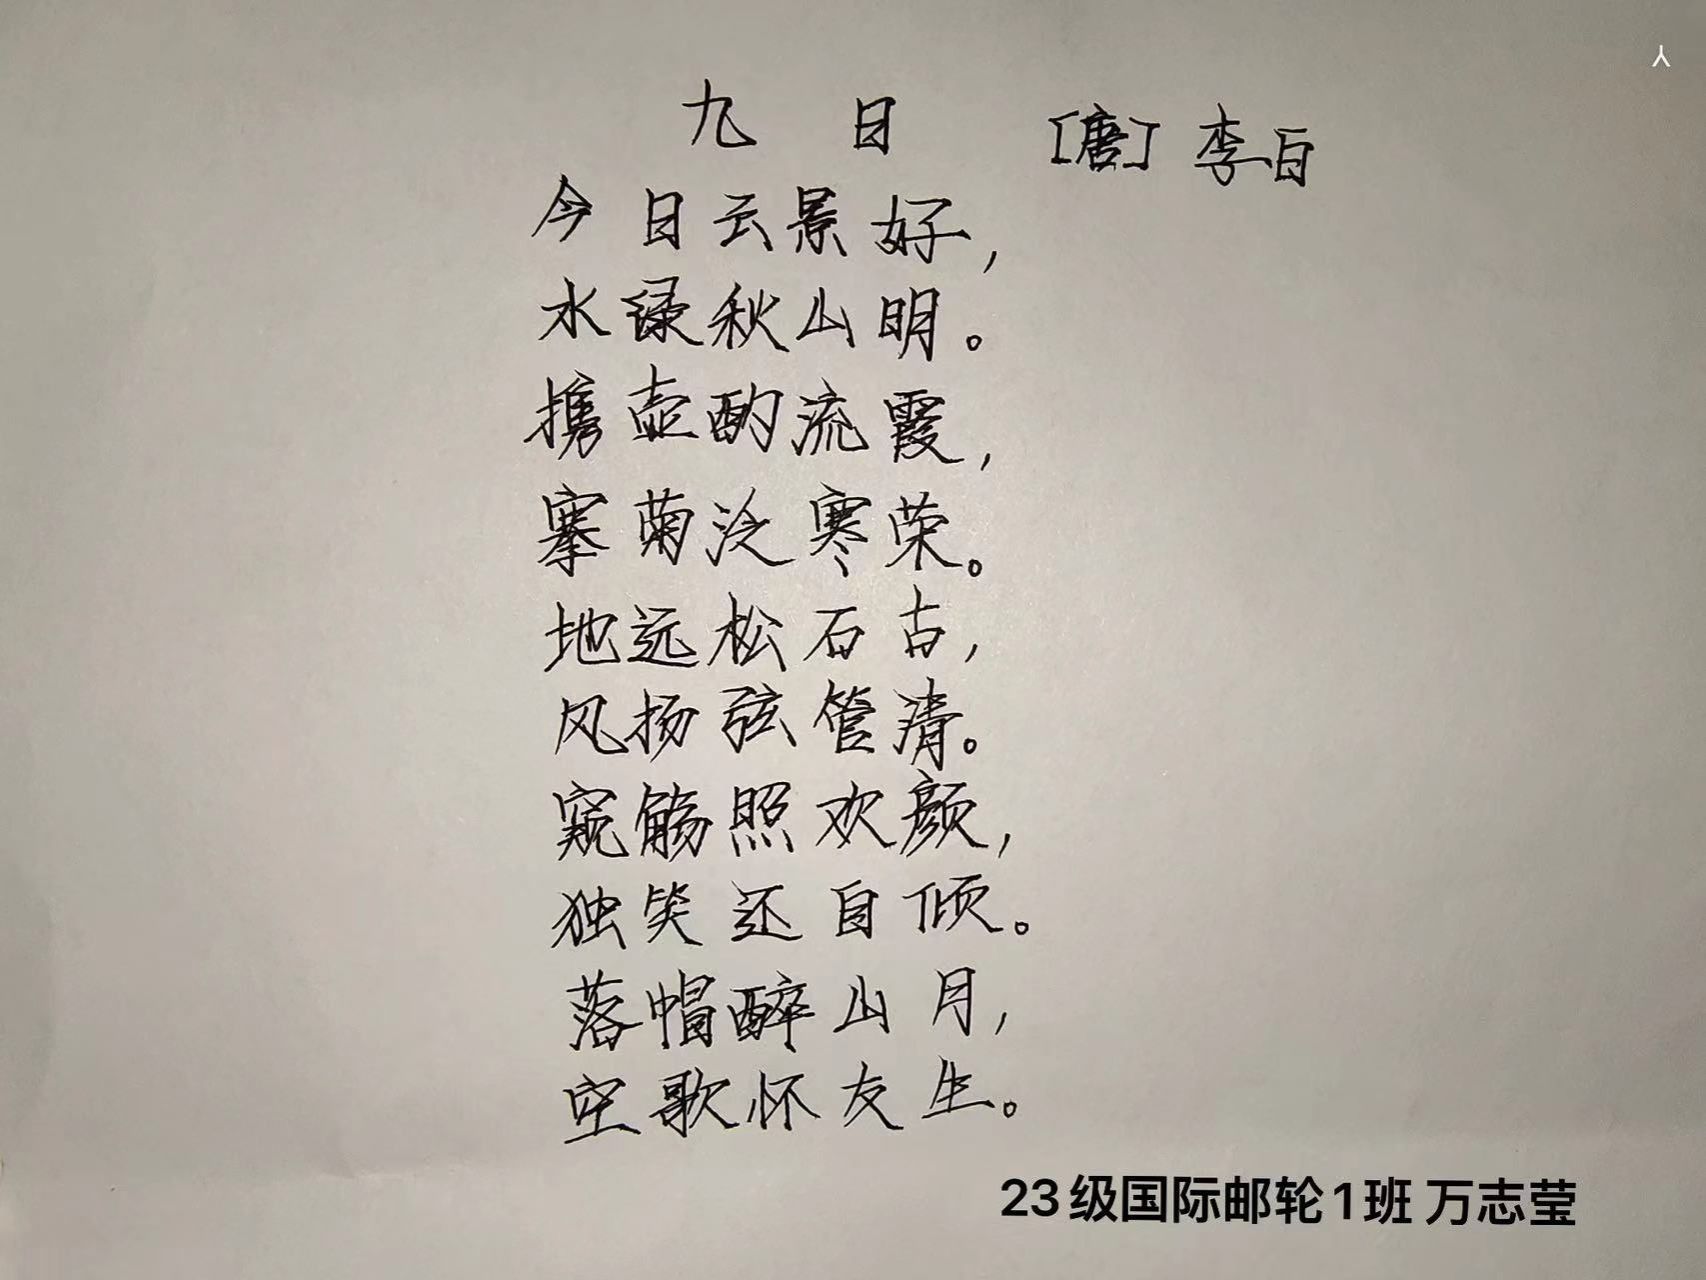 九 日 [唐] 李白
今日云景好，
水绿秋山明。
携壶酌流霞，
搴菊泛寒荣。
地远松石古，
风扬弦管清。
窥觞照欢颜，
独笑还自倾。
落帽醉山月，
空歌怀友生。
23级国际邮轮1班 万志莹